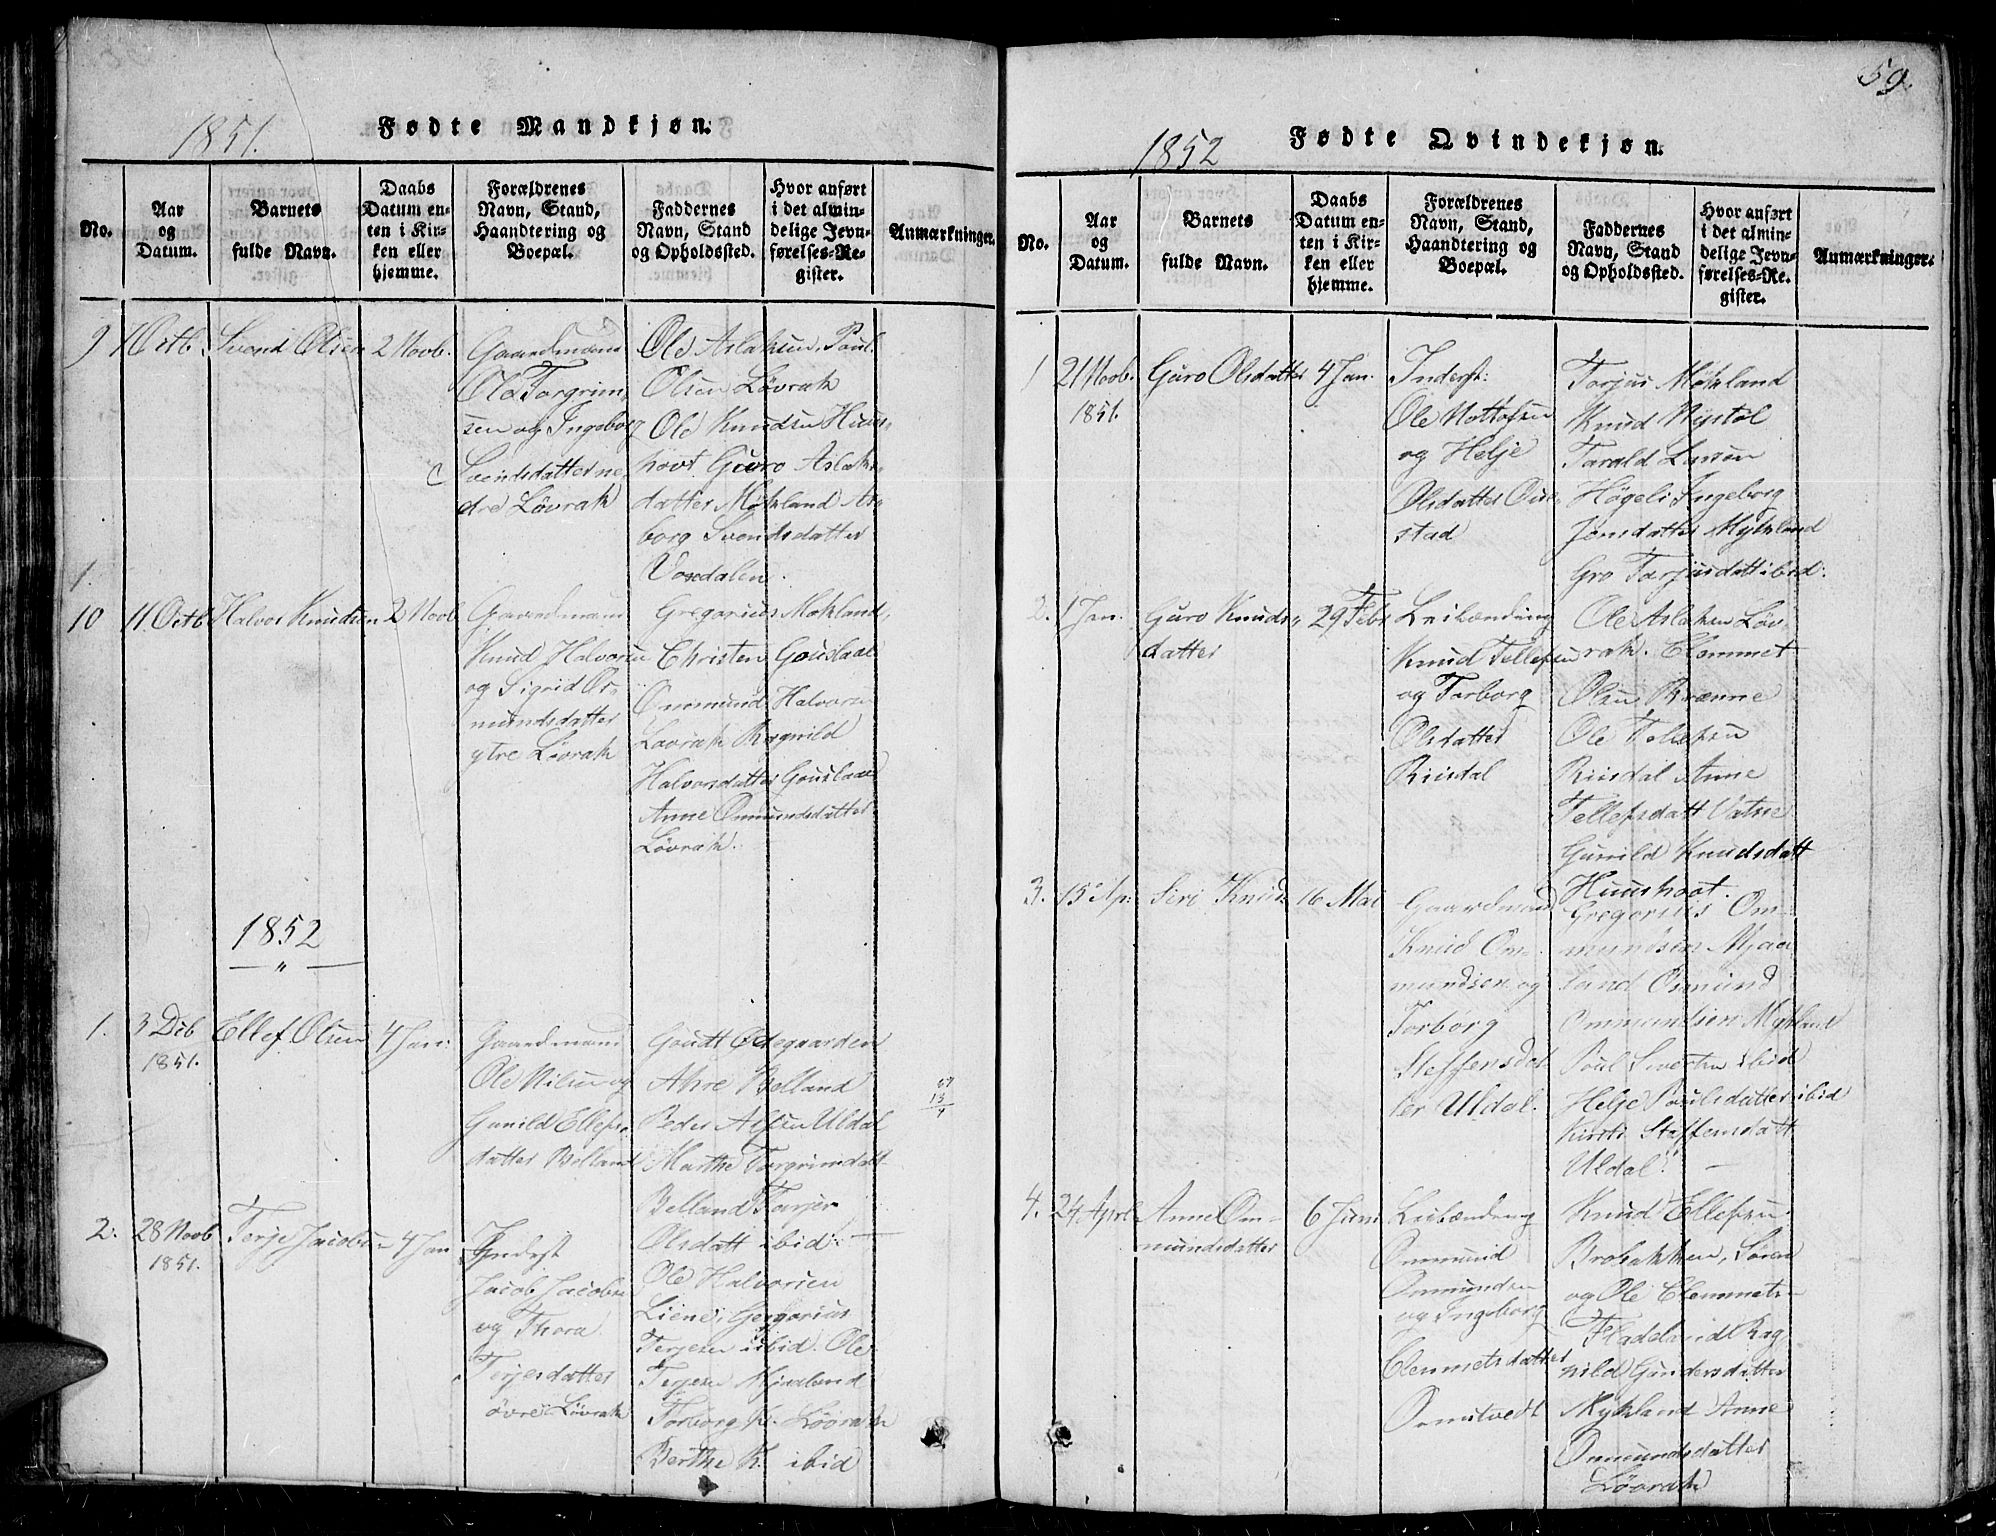 1851.
Fødte Mandkjøn.
No.
Aar
og
Datum.
Barnets
fulde Navn.
Daabs
Datum en-
ten i Kir-
ken eller
hjemme.
Forældrenes
Navn, Stand,
Haandtering og
Boepæl.
Faddernes
Navn, Stand
og Opholdssted.
Hvor anført
i det almin-
delige Jevn-
førelses-Re-
gister.
Anmærkninger.
9
1 Octb.
Svend Olsen
2 Novb.
Gaardmand
Ole Torgrim
sen og Ingeborg
Svendsdatter ne
dre Lövrak
Ole Aslaksen, Poul
Olsen Lövrak
Ole Knudsen Huus-
hovt Guro Aslaks-
datter Mykland As-
borg Svendsdatter
Vordalen.
1.
10
11 Octb
Halvor Knudsen
2 Novb
Gaardmand
Knud Halvorsen
og Sigrid Os-
mundsdatter
ytre Lövrak
Gregorius Mokland,
Christen Gouslaae
Ommund Halvorse
Lovrak Ragnild
Halvorsdatter Gouslaae
Anne Ommundsdatter
Lövrak.
1852
1.
3 Deb
1851.
Ellef Olsen
4 Jan:
Gaardmand
Ole Nilsen og
Gunild Ellefs-
datter Belland
Goudt Ødegaarden
Ahre Belland
Peder Alfsen Uldal
Marthe Torgrimsdatt
Belland Tarjer
Olsdatt ibid:
13
2.
28 Novb
1851.
Terje Jacobsen
4 Jan
Inderst
Jacob Jacobse
og Thora
Terjesdatter
övre Lövrak
Ole Halvorsen
Liene, Gergorius
Terjesen ibid. Ole
Terjesen Mjaaland
Torborg K. Lövrak
Berthe K. ibid
59.
1852
Fødte Qvindekjøn.
No.
Aar
og
Datum.
Barnets
fulde Navn.
Daabs
Datum en-
ten i Kir-
ken eller
hjemme.
Forældrenes
Navn, Stand,
Haandtering og
Boepæl.
Faddernes
Navn, Stand
og Opholdssted.
Hvor anført
i det almin-
delige Jevn-
førelses-Re-
gister.
Anmærkninger.
1
21 Novb.
1851.
Guro Olsdatter
4 Jan.
Inderst:
Ole Nottolsen
og Helje
Olsdatter Ous-
stad
Tarjus Mökland
Knud Nystöl
Tarald Larsen
Högeli Ingeborg
Jonsdatter Mykland
Gro Tarjusdatt ibid:
2.
1 Jan.
Guro Knuds-
datter
29 Febr
Leilænding
Knud Tellefsen
og Torborg
Olsdatter
Riisdal
Ole Aslaksen Löv-
rak. Clommet
Olsen Brænne
Ole Tellefsen
Riisdal Anne
Tellefsdatt Vatne
Gunild Knudsdatt
Huushovt.
3.
15 Ap:
Siri Knuds
16 Mai
Gaardmand
Knud Om-
mundsen og
Torborg
Steffensdat-
ter Uldal.
Gregorius Om-
mundsen Mjaa
land Osmund
Ommundsen Mykland
Poul Sivertsen ibid
Helje Poulsdatter ibid
Kirsti Steffensdatt
Uldal.
4.
24 Aprl
Anne Om-
mundsdatter
6 Juni
Leilænding
Ommund
Ommundsen
og Ingeborg
Clemmetsdatter
Ormtvedt
Knud Ellefsen
Brobakken, Søren
og Ole Clemmets-
Fladeland Rag
nild Gundersdatter
Mykland Anne
Ommundsdatter
Lövrak